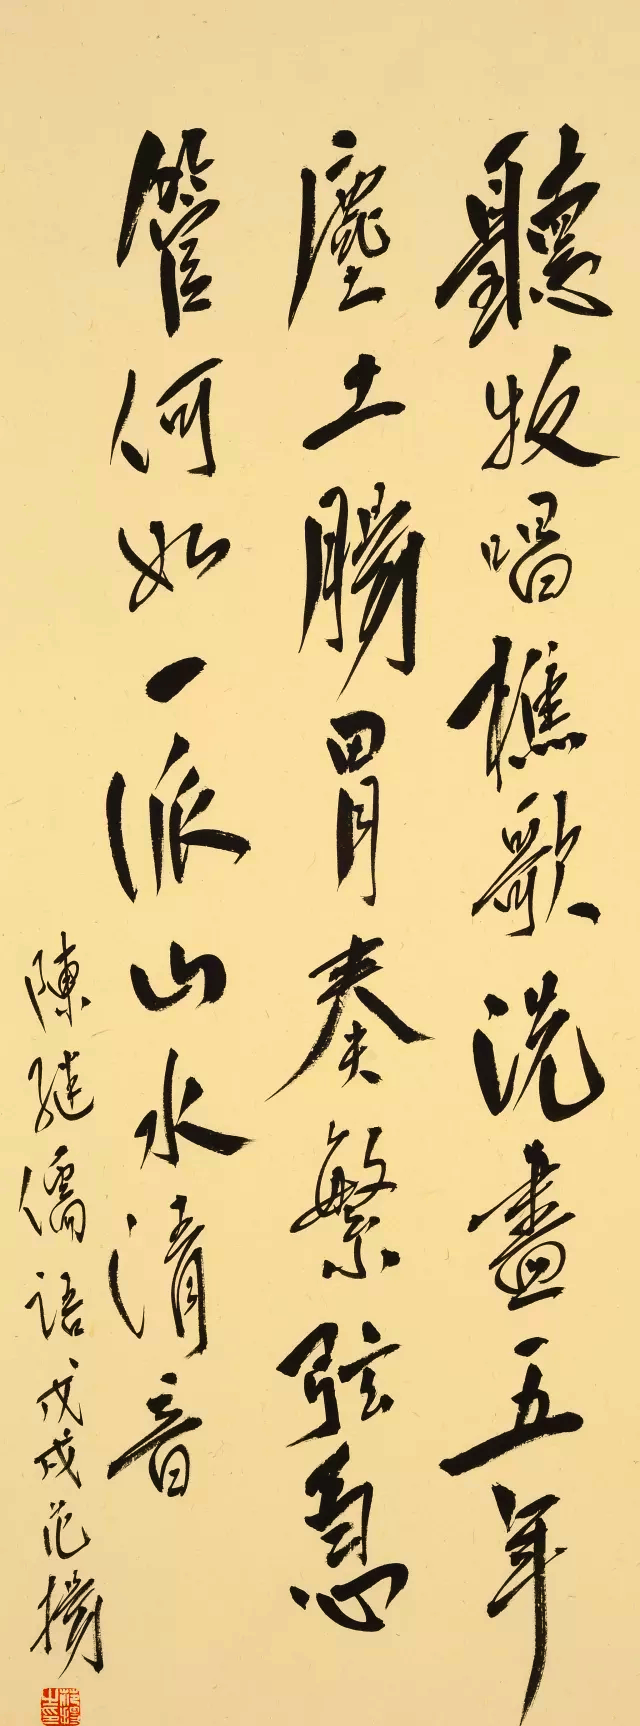 聽牧唱樵歌洗盡五年
塵土腸胃奏繁弦急
管何如一派山水清音
陳繼儒語戊戌范揚
范揚之印